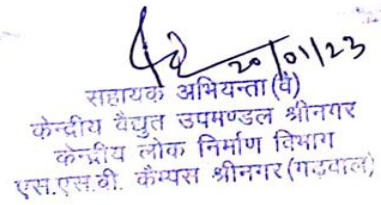 20/01/23
सहायक अभियन्ता (वै)
केन्द्रीय वैद्युत उपमण्डल श्रीनगर
केन्द्रीय लोक निर्माण विभाग
एस.एस.बी. कैम्पस श्रीनगर (गढ़वाल)